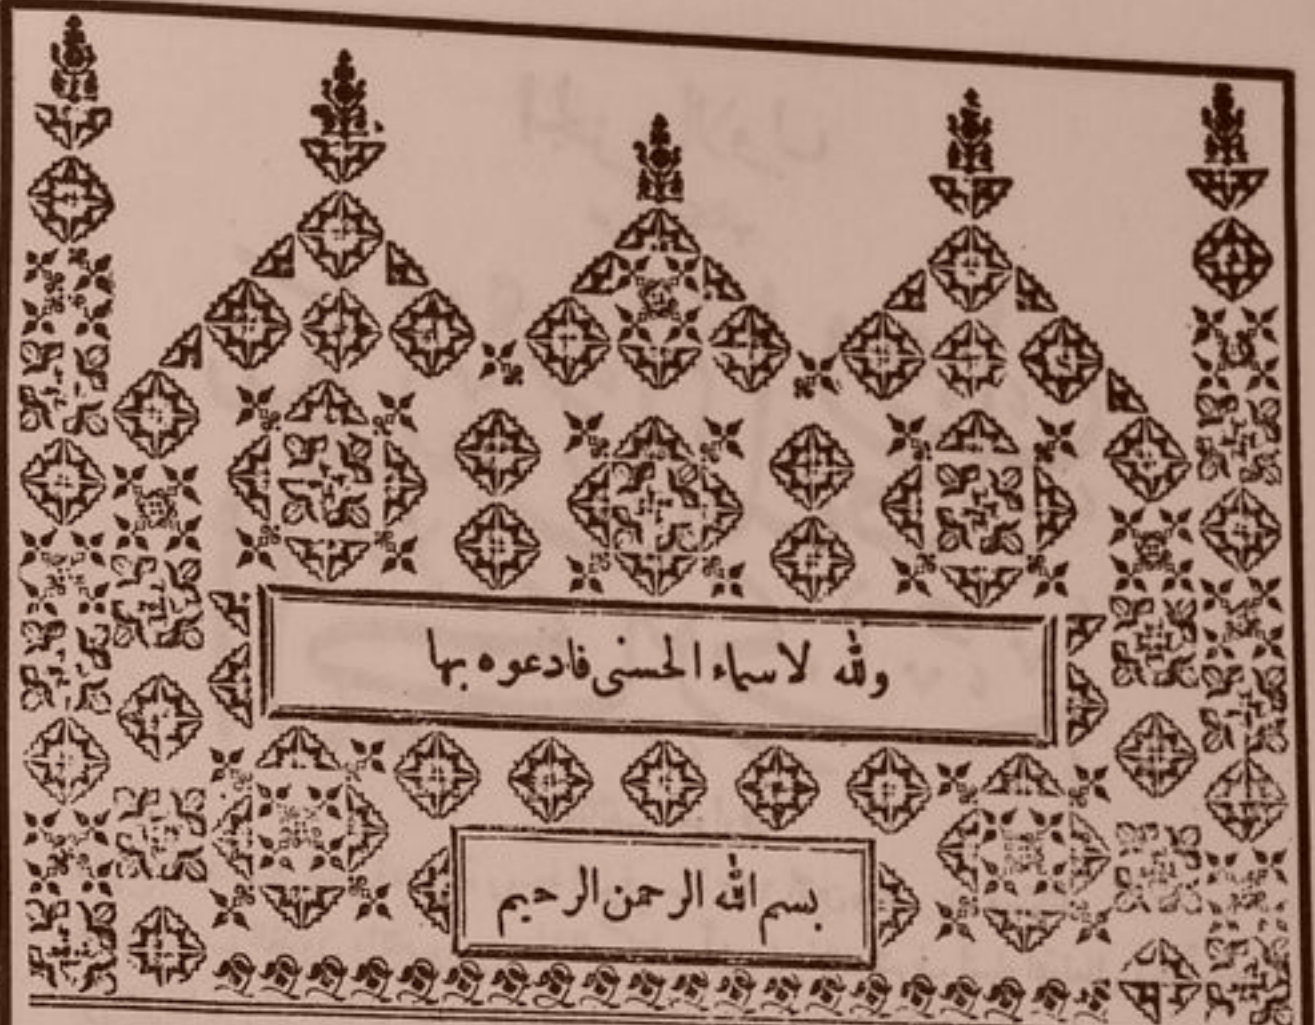 ولله لاسماء الحسنى فادعوه بها
بسم الله الرحمن الرحيم